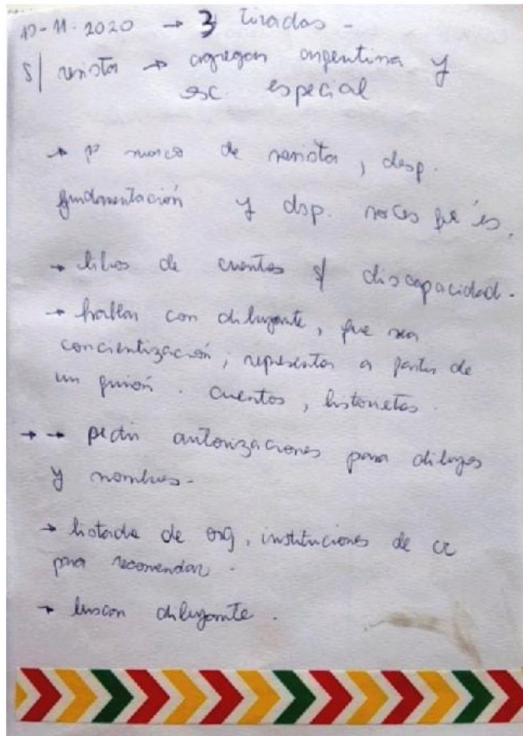 10-11-2020 → 3 tiradas -
S/ revista → agregar argentina y
esc. especial
→ 1º marco de revista, desp.
fundamentación y dsp. voces que és.
→ libros de cuentos s/ discapacidad.
→ hablar con dibujante, que sea
concientización, representar a partir de
un guión. cuentos, historietas.
→ → pedir autorizaciones para dibujos
y nombres.
→ listado de org, instituciones de
para recomendar.
→ buscar dibujante.